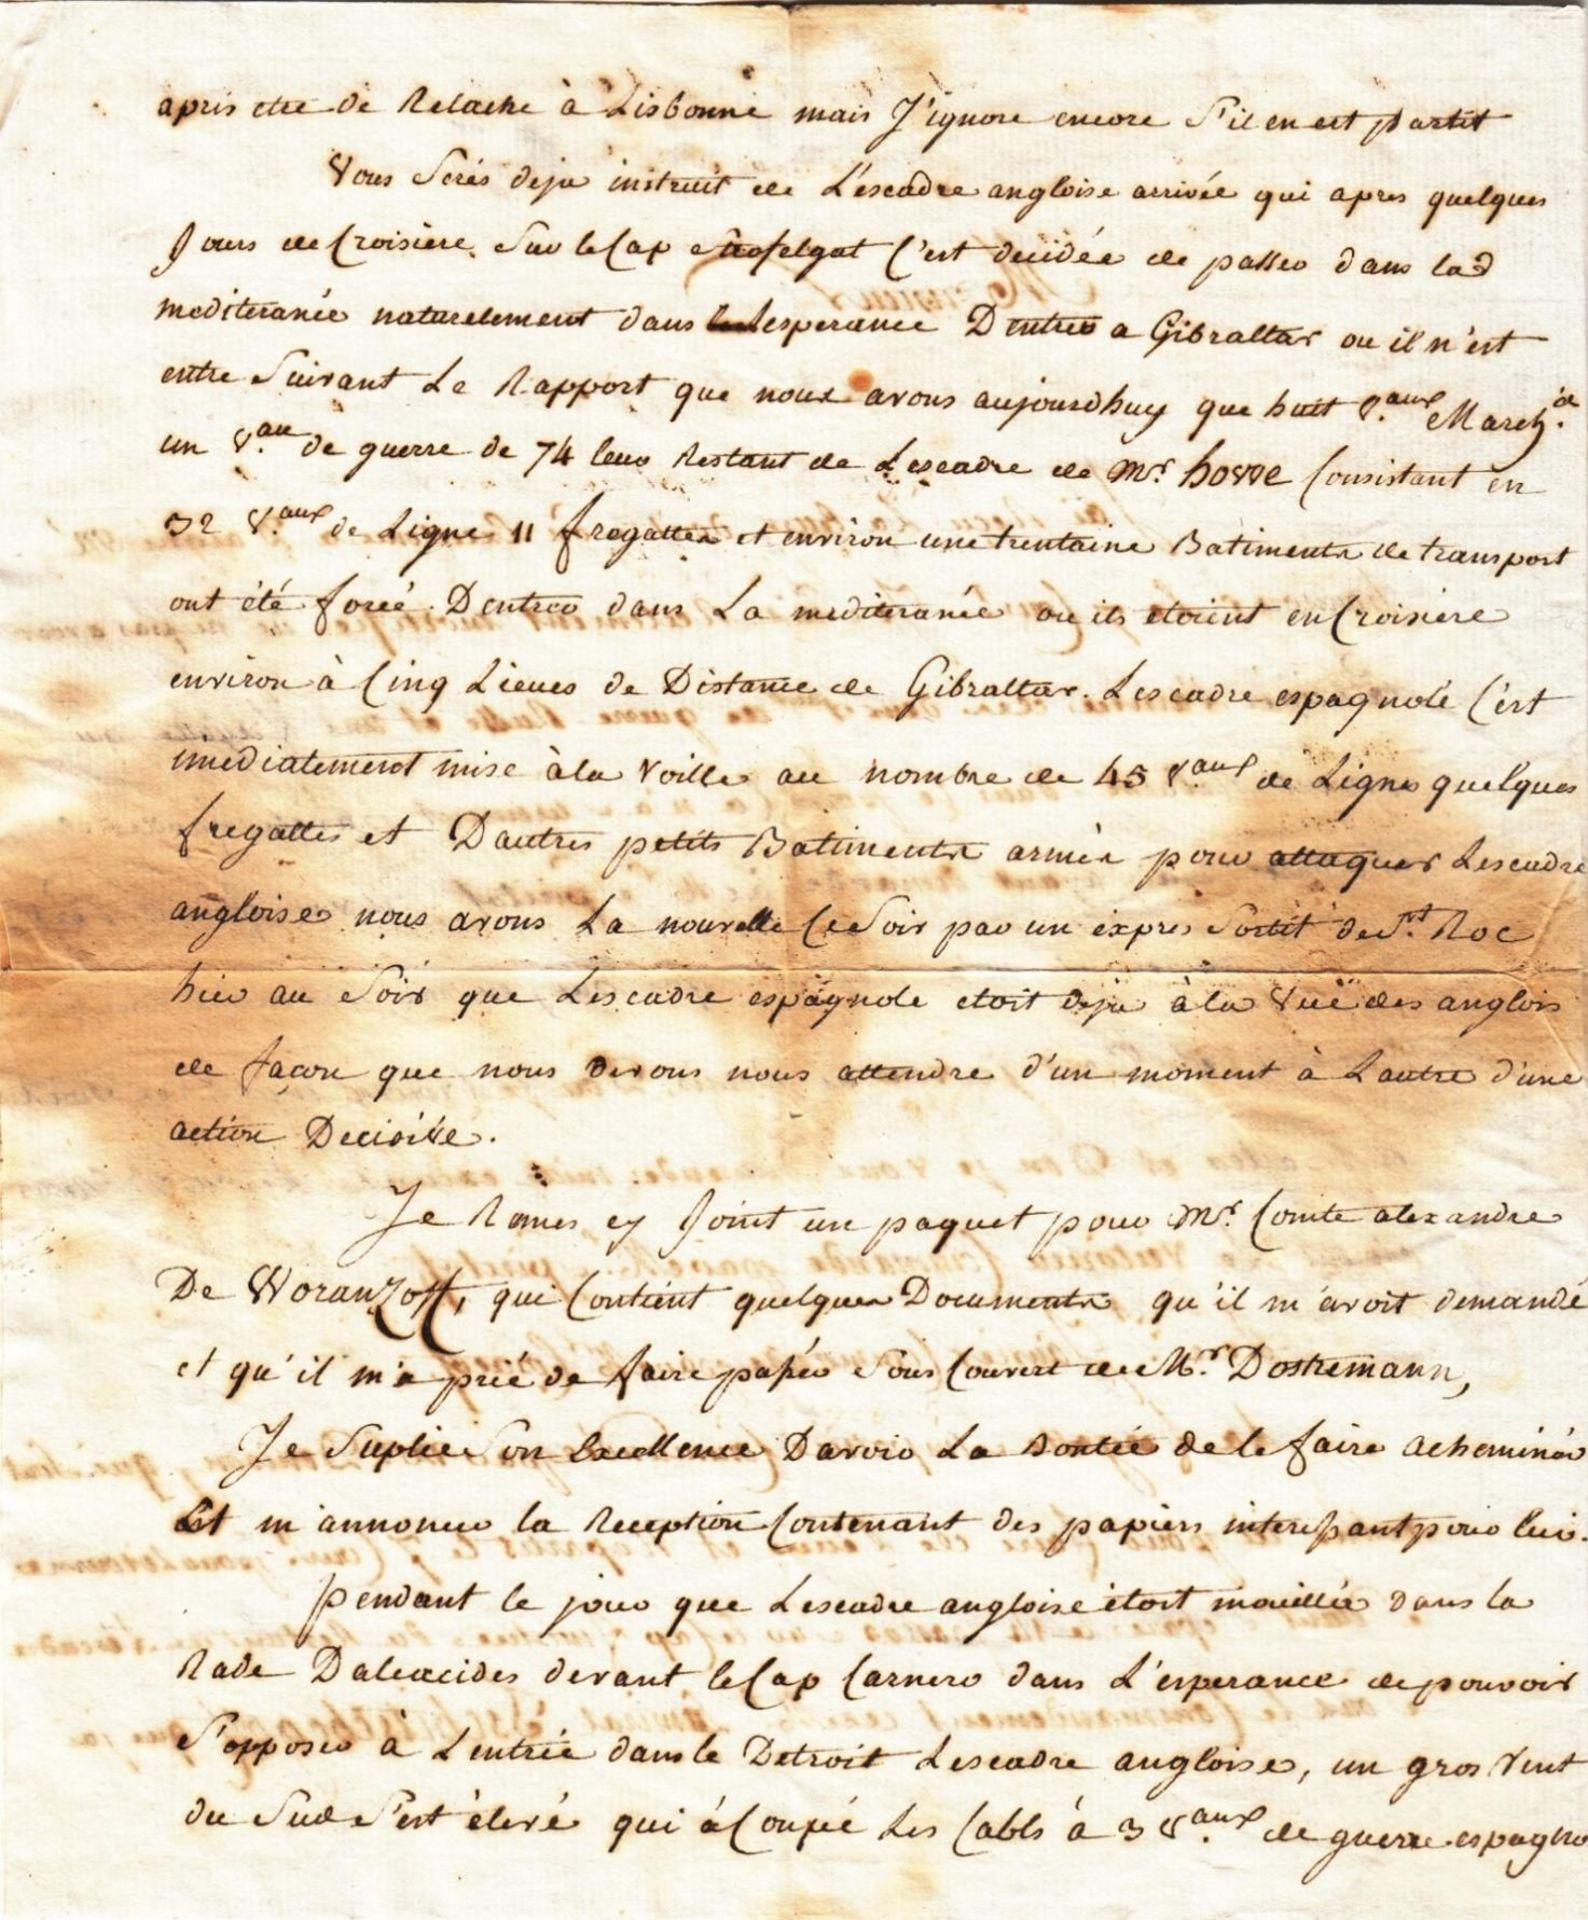 apris etre de Relache à Lisbonne mais J'ignore encore S'il en est partit
Vous Serés deja instruit de L'escadre angloise arrivée qui apres quelques
Jours de Croisiere Sur le Cap C'est decidée de passer dans la
mediteranée naturelement dans Lesperance Dentrer a Gibraltar ou il n'est
entre Suivant Le Rapport que nous avons aujourdhuy que huit V.aux March.ds
un V.au de guerre de 74 leur Restant de Lescadre de Mr. howe Consistant en
32 V.aux de Ligne 11 fregattes et environ une trentaine Batiments de transport
ont été forcé Dentrer dans La mediteranée ou ils etoient en Croisiere
environ à Cinq Lieues de Distance de Gibraltar. Lescadre espagnole C'est
imediatement mise à la Voille au nombre de 45 V.aux de Ligne quelques
fregattes et Dautres petits Batiments armés pour attaquer Lescadre
angloise nous avons La nouvelle Ce Soir par un expres Sortit de St. Roc
hier au Soir que Lescadre espagnole etoit deja à la Vuë des anglois
de façon que nous devons nous attendre d'un moment à Lautre d'une
action Decisive.
Je Remes cy Joint un paquet pour Mr. Comte alexandre
De Woranzoff, qui Contient quelques Documents qu'il m'avoit demandé
et qu'il m'a prié de faire passer Sous Couvert de Mr. Dostremann,
Je Suplie Son Excellence Davoir La Bontée de le faire acheminér
Et m'annoncer la Reception Contenant des papiers interessant pour lui.
pendant le jour que Lescadre angloise étoit mouillée dans la
Rade devant le Cap Carnero dans L'esperance de pouvoir
S'opposer à Lentrée dans le Detroit Lescadre angloise, un gros Vent
du Sud S'est élevé qui à Coupé Les Cabls à 3 V.aux de guerre espagno